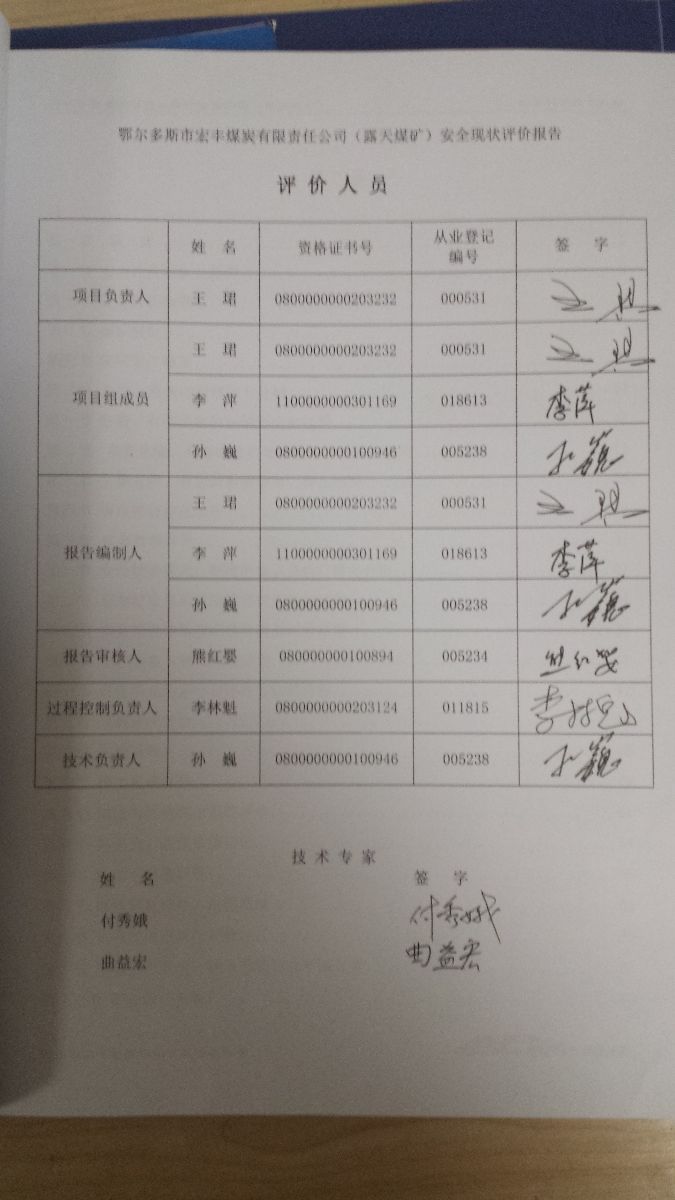 鄂尔多斯市宏丰煤炭有限责任公司（露天煤矿）安全现状评价报告
评 价 人 员
姓 名 资格证书号 从业登记编号 签 字
项目负责人 王 珺 0800000000203232 000531 王 珺
项目组成员 王 珺 0800000000203232 000531 王 珺
李 萍 1100000000301169 018613 李萍
孙 巍 0800000000100946 005238 孙巍
报告编制人 王 珺 0800000000203232 000531 王 珺
李 萍 1100000000301169 018613 李萍
孙 巍 0800000000100946 005238 孙巍
报告审核人 熊红婴 080000000100894 005234 熊红婴
过程控制负责人 李林魁 0800000000203124 011815 李林魁
技术负责人 孙 巍 0800000000100946 005238 孙巍
技 术 专 家
姓 名 签 字
付秀娥 付秀娥
曲益宏 曲益宏